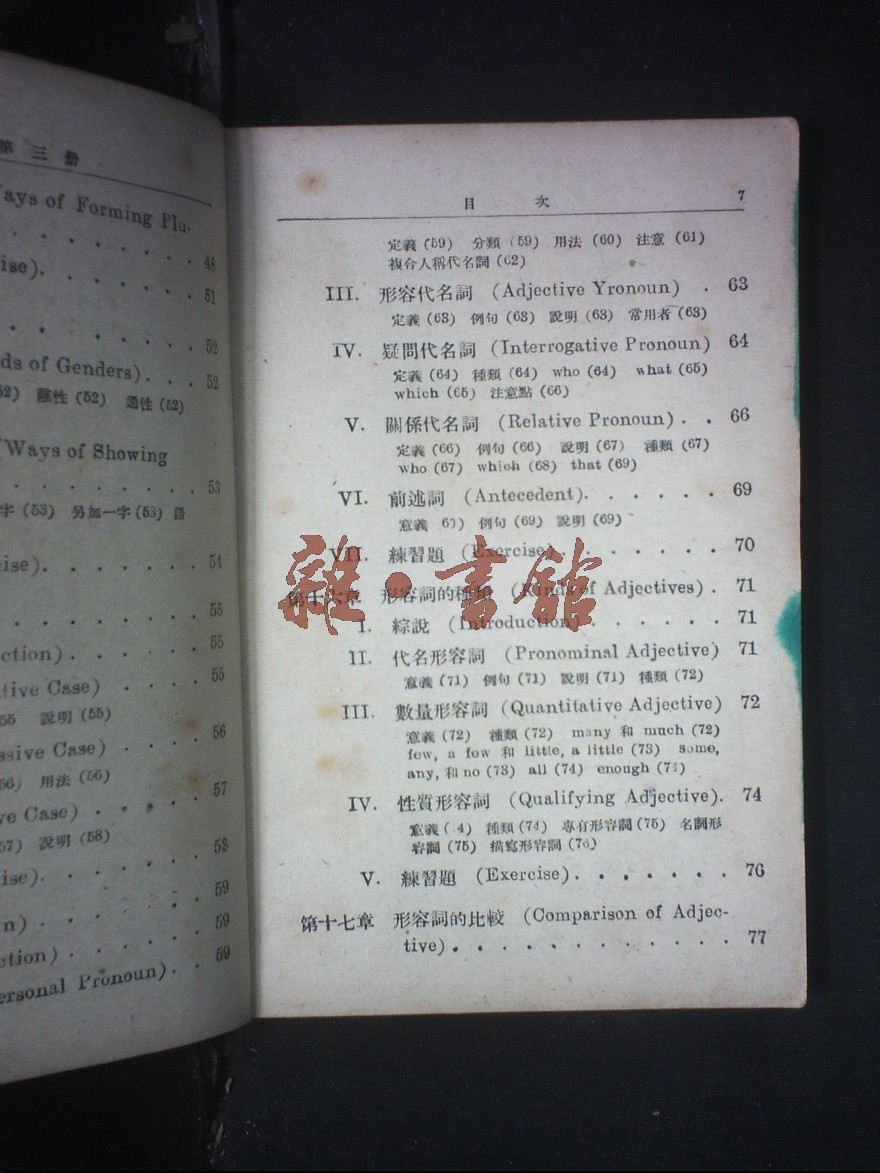 第三册
Ways of Forming Plu-
. . . . . . 48
ise). . . . . . 51
. . . . . . 52
ds of Genders). . . 52
52) 陰性 (52) 通性 (52)
(Ways of Showing
. . . . . . . 53
字 (53) 另加一字 (53) 語
ise). . . . . . . 54
. . . . . . . 55
ction) . . . . . . 55
tive Case) . . . . 55
55 說明 (55)
ssive Case) . . . . 56
56) 用法 (56)
ve Case) . . . . . 57
57) 說明 (58)
ise). . . . . . . 58
n) . . . . . . . 59
ction) . . . . . . 59
ersonal Pronoun). . 59
目次 7
定義 (59) 分類 (59) 用法 (60) 注意 (61)
複合人稱代名詞 (62)
III. 形容代名詞 (Adjective Yronoun) . 63
定義 (63) 例句 (63) 說明 (63) 常用者 (63)
IV. 疑問代名詞 (Interrogative Pronoun) 64
定義 (64) 種類 (64) who (64) what (65)
which (65) 注意點 (66)
V. 關係代名詞 (Relative Pronoun) . . 66
定義 (66) 例句 (66) 說明 (67) 種類 (67)
who (67) which (68) that (69)
VI. 前述詞 (Antecedent). . . . . . 69
意義 6) 例句 (69) 說明 (69)
VII. 練習題 (Exercise). . . . . . . 70
第十六章 形容詞的種類 (Kinds of Adjectives) . 71
I. 綜說 (Introduction) . . . . . 71
II. 代名形容詞 (Pronominal Adjective) 71
意義 (71) 例句 (71) 說明 (71) 種類 (72)
III. 數量形容詞 (Quantitative Adjective) 72
意義 (72) 種類 (72) many 和 much (72)
few, a few 和 little, a little (73) some,
any, 和 no (73) all (74) enough (74)
IV. 性質形容詞 (Qualifying Adjective). 74
意義 ( 4) 種類 (74) 專有形容詞 (75) 名詞形
容詞 (75) 描寫形容詞 (76)
V. 練習題 (Exercise). . . . . . . 76
第十七章 形容詞的比較 (Comparison of Adjec-
tive) . . . . . . . . . . . 77
雜·書館